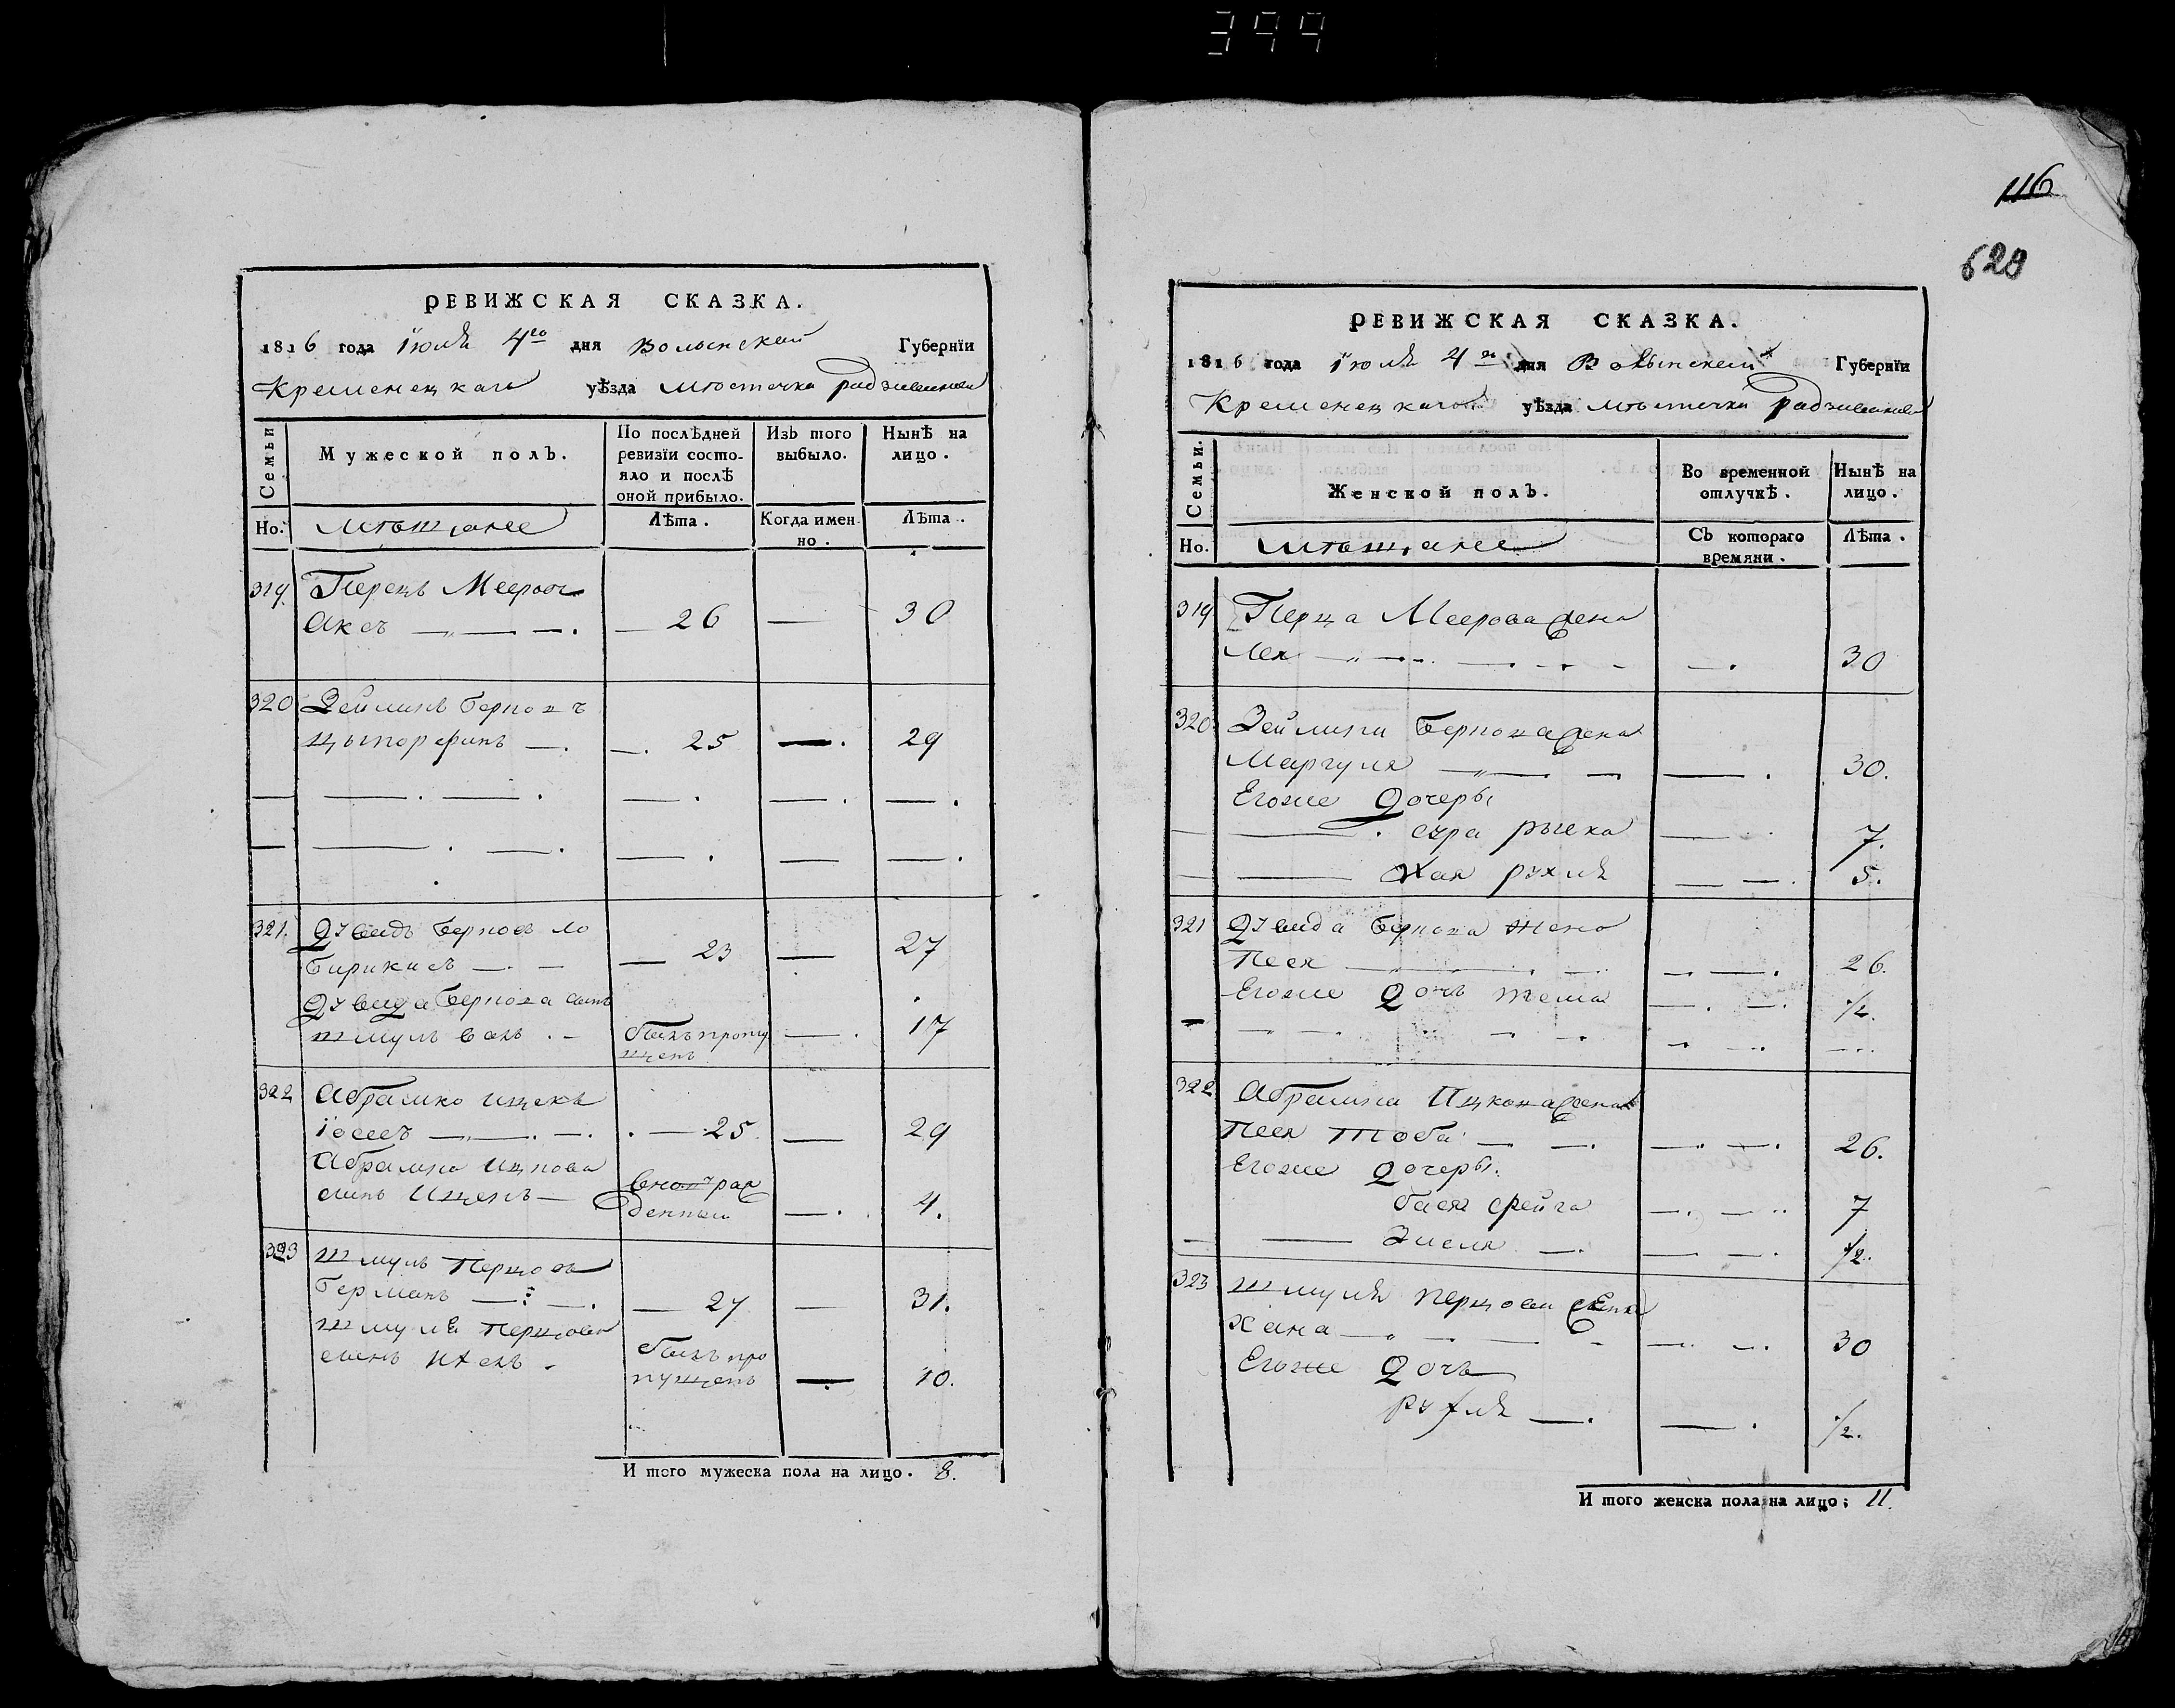 399
116
629
РЕВИЖСКАЯ СКАЗКА.
1816 года Iюля 4го дня Волынской Губернїи
Кременецкаго уѣзда мѣстечка Радзивилова
Семьи
Мужеской полъ.
По послѣдней ревизїи состо-
яло и послѣ
оной прибыло.
Изъ того
выбыло.
Нынѣ на
лицо.
Но.
мѣщане
Лѣта.
Когда имен-
но.
Лѣта.
319. Перецъ Мееров
Аксъ — 26 — 30
320 Зейликъ Берков
цыпорфинъ — 25 — 29
321. Дувидъ Берковъ
23 — 27
Дувида Беркова сынъ
шмуль волъ
былъ пропу
щенъ — 17
322 Абрамко Ицекъ
Iосесъ — 25 — 29
Абрамка Ицкова
сынъ Ицекъ
вновь рож
денный — 4.
323 шмуль Перцовъ
Германъ — 27 — 31.
шмуля Перцова
сынъ
былъ про
пущенъ — 10.
И того мужеска пола на лицо. 8.
РЕВИЖСКАЯ СКАЗКА.
1816 года Iюля 4го дня Волынской Губернїи
Кременецкаго уѣзда мѣстечка Радзивилова
Семьи.
Женской полъ.
Во временной
отлучкѣ.
Нынѣ на
лицо.
Но.
мѣщане
Съ котораго
времяни.
Лѣта.
319 Перца Меерова жена
Лея — 30
320 Зейлика Беркова жена
Маргуля — 30.
Егоже дочери
сура рыска — 7.
Хая рухля — 5.
321 Дувида Беркова жена
Песя — 26.
Егоже дочь — 1/2.
322 Абрамка Ицкова жена
Песя Тоба — 26.
Егоже дочери.
бася фейга — 7
Эстля — 1/2.
323 шмуля перцова жена
Хана — 30
Егоже дочь
рухля — 1/2.
И того женска пола на лицо; 11.